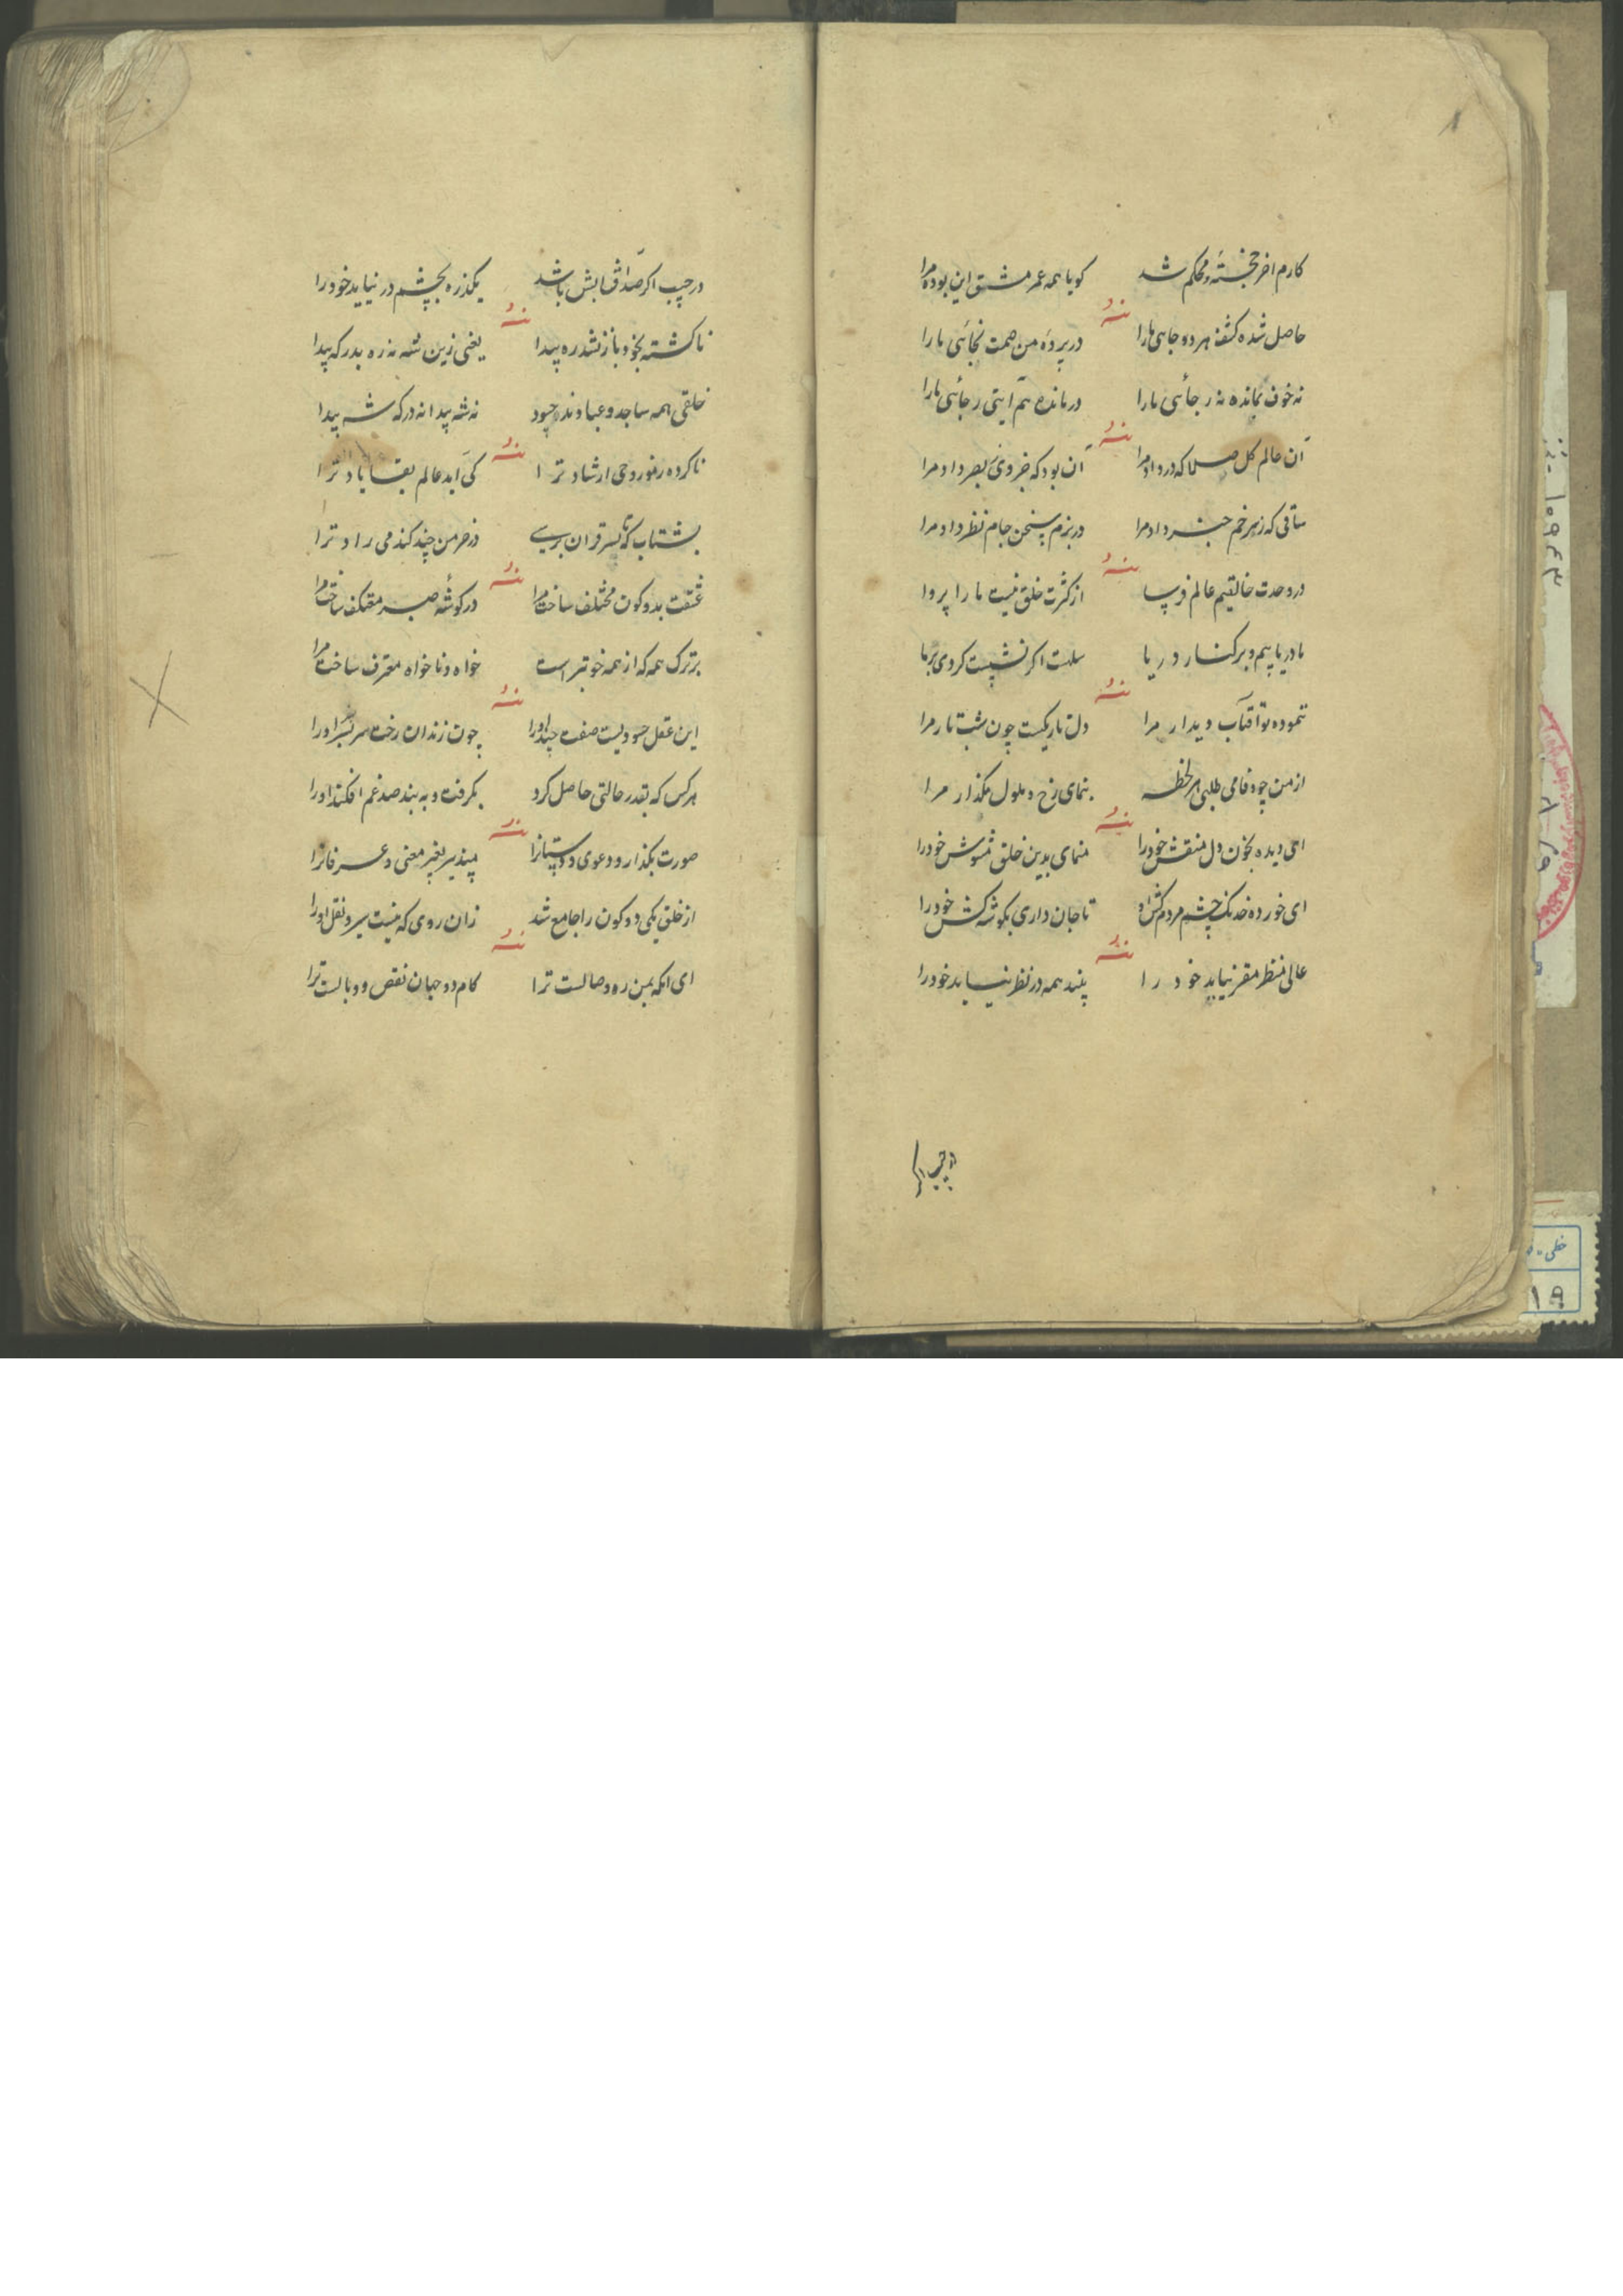 کارم اخر پخته و محکم شد کویا همه عمر مشق این بوده مرا
منه
حاصل شده کشف هر دو جاهی مارا در پرده من همت نجائی مارا
نه خوف نمانده نه رجائی مارا در مانده هم آیتی رجائی مارا
منه
آن عالم کل صلا که در داد مرا آن بود که خبر وی بصر داد مرا
ساقی که زهر خم خبر داد مرا در بزم سخن جام نظر داد مرا
منه
در وحدت خالقیم عالم فرسا از کثرت خلق نیست ما را پروا
ما دریاییم و بر کنار دریا سلست اکر نشست کردی بر ما
منه
ننموده تو آفتاب دیدار مرا دل تاریکست چون شب تار مرا
از من چو وفا می طلبی هر لحظه بنمای رخ و ملول مکذار مرا
منه
ای دیده بخون دل منقش خود را منمای بدین خلق مشوش خود را
ای خورده خدنک چشم مردم کش او تا جان داری بکوشه کش خود را
منه
عالی منظر مقر نیابد خود را بیند همه در نظر نیابد خود را
در جیب اکر
در جیب اکر صد آفتابش باشد یکذره بچشم در نیاید خود را
منه
ناکشته بخود باز نشد ره پیدا یعنی زین شه نه ره بدرکه پیدا
خلقی همه ساجد و عباوند چسود نه شه پیدا نه درکه شه پیدا
منه
ناکرده ز نور وحی ارشاد ترا کی آید عالم بقا یاد ترا
بشتاب که تا بسر قران برسی در خرمن چند کند می راد ترا
منه
عشقت بدو کون مختلف ساخت مرا در کوشه صبر معتکف ساخت مرا
بر ترک همه که از همه خوبتر است خواه و ناخواه معترف ساخت مرا
منه
این عقل حسودیست صفت چند او را چون زندان رخت سر بسر او را
هر کس که بقدر حالتی حاصل کرد بکرفت و به بند صد غم افکند او را
منه
صورت بکذار و دعوی و دستانرا مپذیر بغیر معنی و عرفانرا
از خلق یکی دو کون را جامع شد زان روی که نیست سیر و نقل او را
منه
ای انکه بمن ره وصالست ترا کام دو جهان نقص و وبالست ترا
۱۰۹۴۳
خطی
۱۹